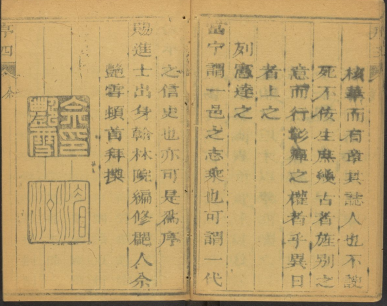 核華而有章其誌人也不說
死不佞生庶幾古者旌別之
意而行彰癉之權者乎異日
者上之
列憲達之
當宁謂一邑之志乘也可謂一代
之信史也亦可是為序
賜進士出身翰林院編修人余
艷雪頓首拜撰
序四